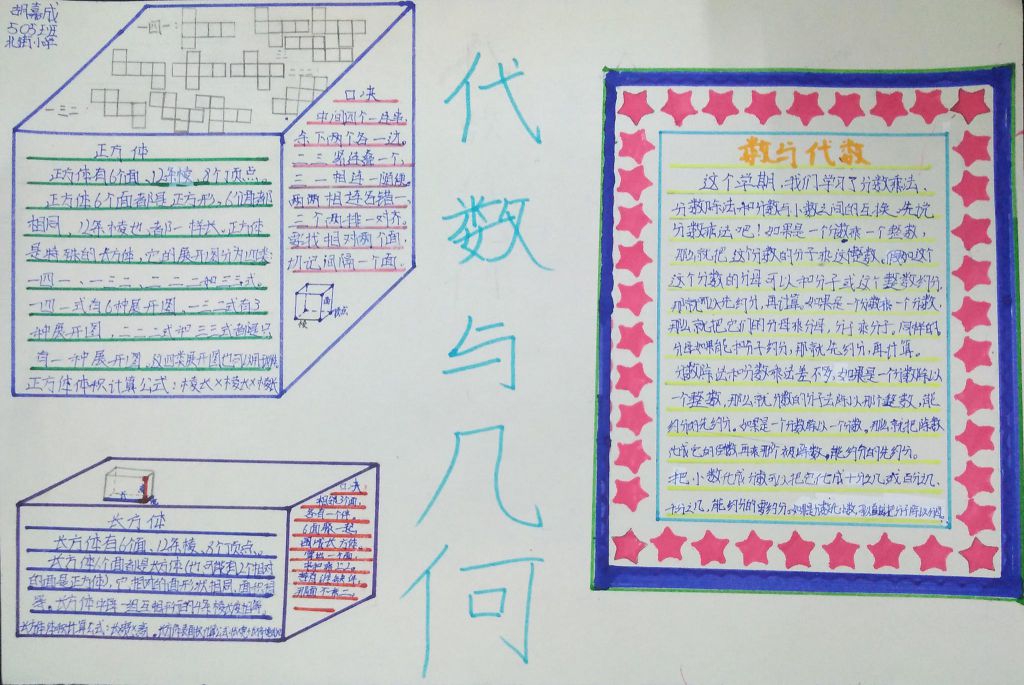 胡嘉成
505班
北街小学
一四一:
二三一
口决
中间四个一连串,
余下两个各一边。
二三紧连叠一个,
三一相连一随便。
两两相连各错一,
三个两排一对齐。
要找相对两个面,
切记间隔一个面。
正方体
正方体有6个面、12条棱、8个顶点。
正方体6个面都是正方形,6个面都
相同,12条棱也都一样长。正方体
是特殊的长方体,它的展开图分为四类:
一四一、一三二、二二二和三三式。
一四一式有6种展开图,一三二式有3
种展开图,二二二式和三三式都是只
有一种展开图,
正方体体积计算公式:棱长×棱长×棱长
顶点
棱
长方体
长方体有6个面、12条棱、8个顶点。
长方体6个面都是长方体(也可能有2个相对
的面是正方体),它相对的面形状相同,面积相
等。
口决
相邻3个面,
各自一个样。
6面聚一起,
代数与几何
数与代数
这个学期,我们学习了分数乘法、
分数除法和分数与小数之间的互换。先说
分数乘法吧!如果是一个分数乘一个整数,
那么就把这个分数的分子乘这个整数。假如这个
这个分数的分母可以和分子或这个整数约分,
那就可以先约分,再计算。如果是一个分数乘一个分数,
那么就把它们的分母乘分母,分子乘分子,同样的,
分母如果能和分子约分,那就先约分,再计算。
分数除法和分数乘法差不多,如果是一个分数除以
一个整数,那么就分数的分子去除以那个整数,能
约分的先约分。如果是一个分数除以一个分数。那么就把除数
化成它的倒数再乘那个被除数。能约分的先约分。
把小数化成分数可以把它化成十分之几或百分之几、
千分之几,能约分的要约分。